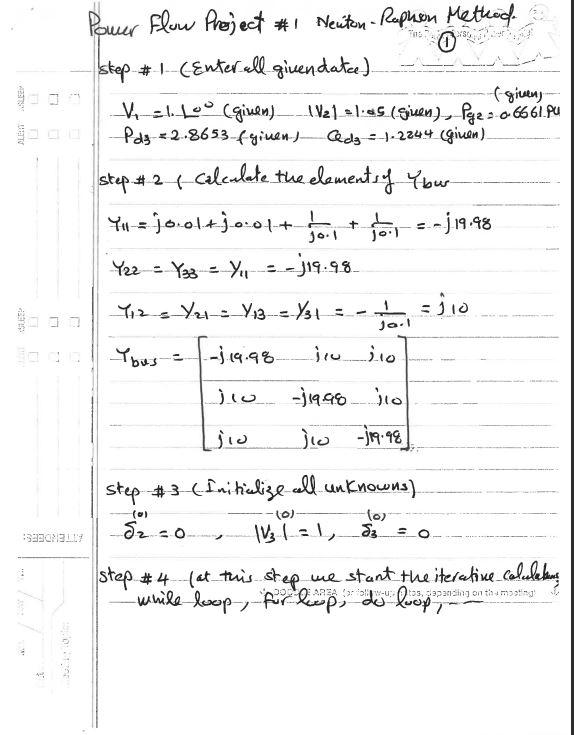 Power Flow Project #1 Newton-Raphson Method.
①
step #1 (Enter all given data)
V₁ = 1.∠0° (given) |V₂| = 1.05 (given), Pg2 = 0.6661 PU (given)
Pd3 = 2.8653 (given) Qd3 = 1.2244 (given)
step #2 ( Calculate the elements of Ybus
Y11 = j0.01 + j0.01 + 1/j0.1 + 1/j0.1 = -j19.98
Y22 = Y33 = Y11 = -j19.98
Y12 = Y21 = Y13 = Y31 = - 1/j0.1 = j10
Ybus = [ -j19.98 j10 j10
j10 -j19.98 j10
j10 j10 -j19.98 ]
step #3 (Initialize all unknowns)
δ₂⁽⁰⁾ = 0 , |V₃|⁽⁰⁾ = 1, δ₃⁽⁰⁾ = 0
step #4 (at this step we start the iterative calculations
while loop, for loop, do loop, ---
ATTENDEES: